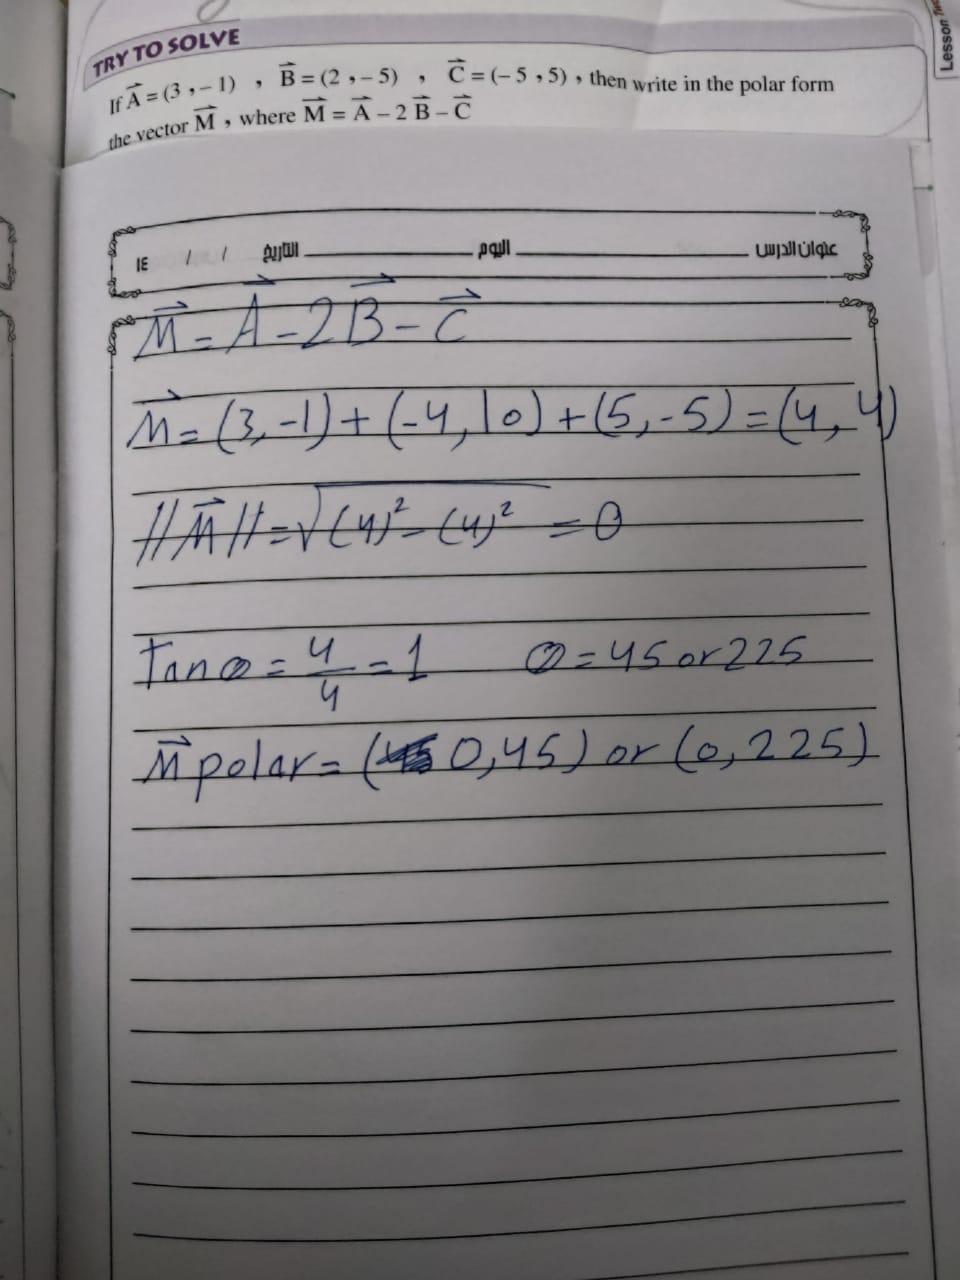 Lesson
TRY TO SOLVE
If A⃗ = (3 , – 1) , B⃗ = (2 , – 5) , C⃗ = (– 5 , 5) , then write in the polar form
the vector M⃗ , where M⃗ = A⃗ – 2 B⃗ – C⃗
عنوان الدرس اليوم التاريخ / / ١٤
M⃗ = A⃗ - 2B⃗ - C⃗
M⃗ = (3, -1) + (-4, 10) + (5, -5) = (4, 4)
||M⃗|| = √(4)² - (4)² = 0
Tan θ = 4/4 = 1 θ = 45 or 225
M⃗ polar = (0, 45) or (0, 225)